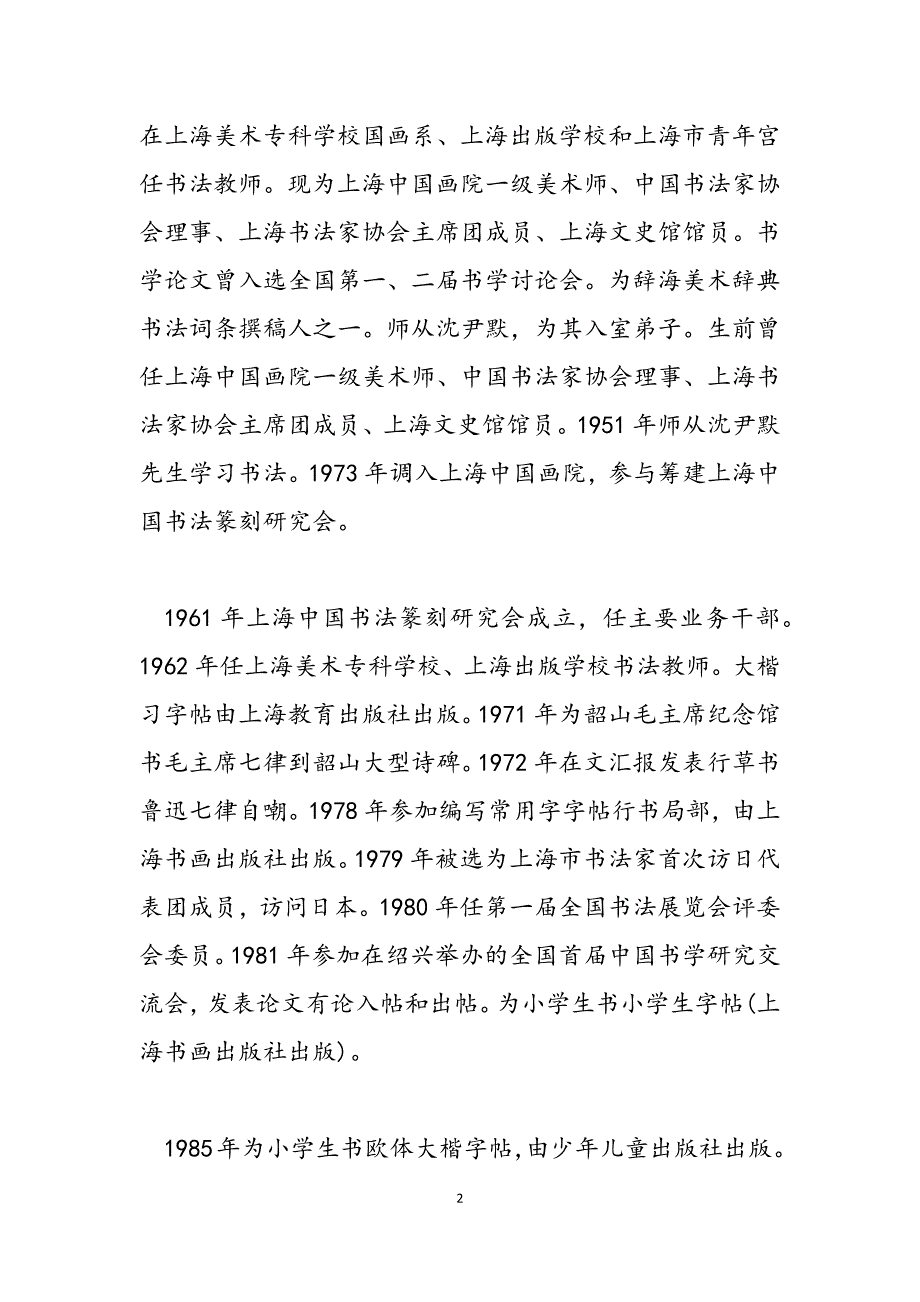 在上海美术专科学校国画系、上海出版学校和上海市青年宫
任书法教师。现为上海中国画院一级美术师、中国书法家协
会理事、上海书法家协会主席团成员、上海文史馆馆员。书
学论文曾入选全国第一、二届书学讨论会。为辞海美术辞典
书法词条撰稿人之一。师从沈尹默，为其入室弟子。生前曾
任上海中国画院一级美术师、中国书法家协会理事、上海书
法家协会主席团成员、上海文史馆馆员。1951 年师从沈尹默
先生学习书法。1973 年调入上海中国画院，参与筹建上海中
国书法篆刻研究会。
1961 年上海中国书法篆刻研究会成立，任主要业务干部。
1962 年任上海美术专科学校、上海出版学校书法教师。大楷
习字帖由上海教育出版社出版。1971 年为韶山毛主席纪念馆
书毛主席七律到韶山大型诗碑。1972 年在文汇报发表行草书
鲁迅七律自嘲。1978 年参加编写常用字字帖行书局部，由上
海书画出版社出版。1979 年被选为上海市书法家首次访日代
表团成员，访问日本。1980 年任第一届全国书法展览会评委
会委员。1981 年参加在绍兴举办的全国首届中国书学研究交
流会，发表论文有论入帖和出帖。为小学生书小学生字帖(上
海书画出版社出版)。
1985 年为小学生书欧体大楷字帖，由少年儿童出版社出版。
2